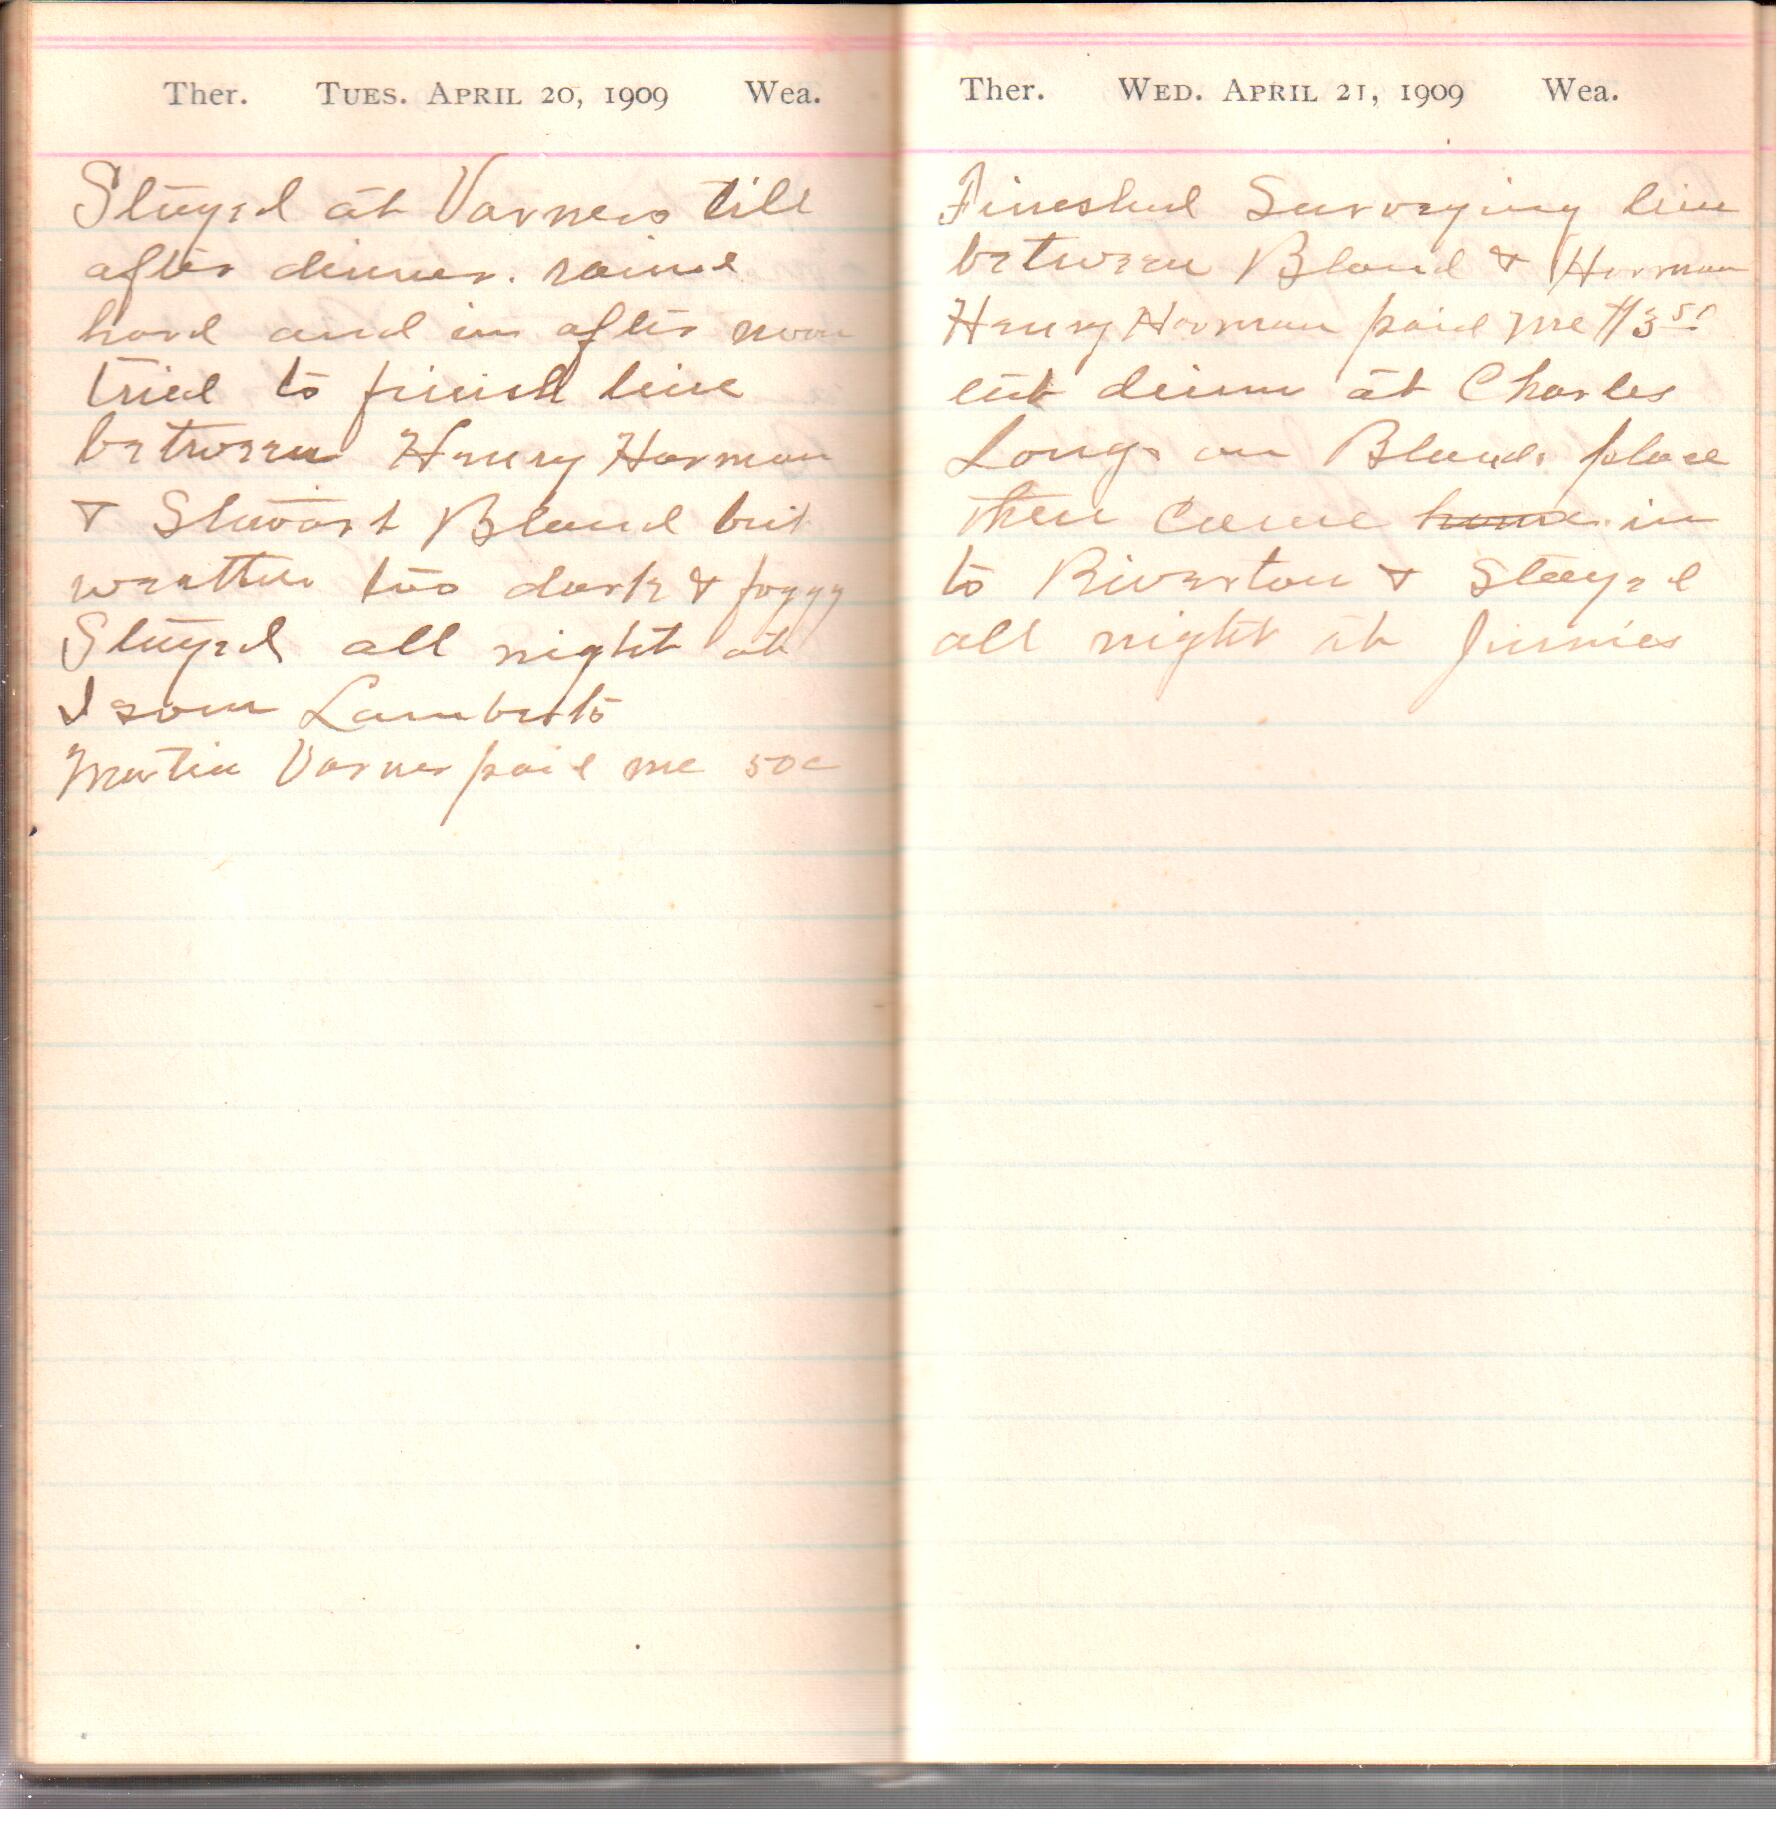 Ther. TUES. APRIL 20, 1909 Wea.
Stayed at Varners till
after dinner. rained
hard and in after noon
tried to finish line
between Henry Harman
& Stuwart Bland but
weather too dark & foggy
Stayed all night at
Isom Lamberts
Martin Varner paid me 50c
Ther. WED. APRIL 21, 1909 Wea.
Fineshed Surveying line
between Bland & Harman
Henry Harman paid me $3
eat dinner at Charles
Longs on Blands place
then came home in
to Riverton & Stayed
all night at